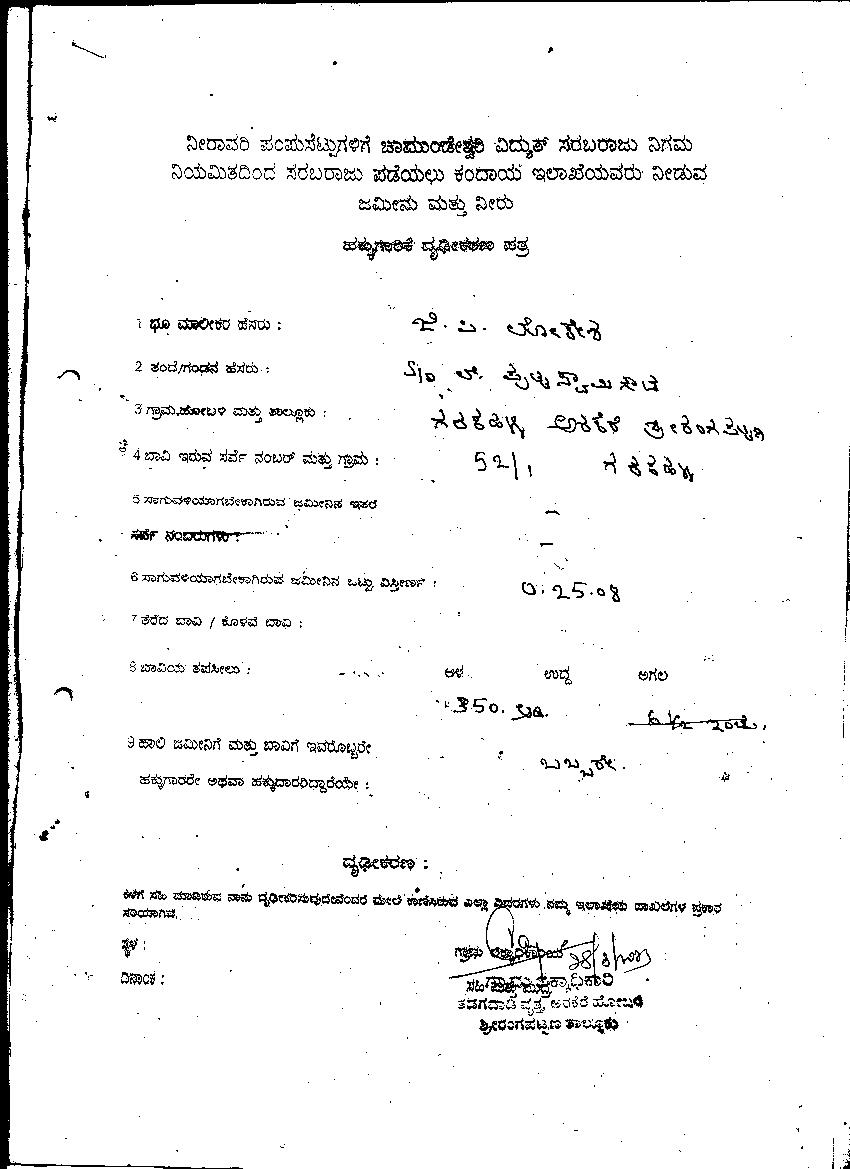 ನೀರಾವರಿ ಪಂಪುಸೆಟ್ಟುಗಳಿಗೆ ಚಾಮುಂಡೇಶ್ವರಿ ವಿದ್ಯುತ್ ಸರಬರಾಜು ನಿಗಮ
ನಿಯಮಿತದಿಂದ ಸರಬರಾಜು ಪಡೆಯಲು ಕಂದಾಯ ಇಲಾಖೆಯವರು ನೀಡುವ
ಜಮೀನು ಮತ್ತು ನೀರು
ಹಕ್ಕುಗಾರಿಕೆ ದೃಢೀಕರಣ ಪತ್ರ
1 ಭೂ ಮಾಲೀಕರ ಹೆಸರು : ಜೆ. ಪಿ. ಲೋಕೇಶ
2 ತಂದೆ/ಗಂಡನ ಹೆಸರು : S/o ಪುಟ್ಟಸ್ವಾಮಿಗೌಡ
3 ಗ್ರಾಮ,ಹೋಬಳಿ ಮತ್ತು ತಾಲ್ಲೂಕು : ಅರಕೆರೆ ಶ್ರೀರಂಗಪಟ್ಟಣ
4 ಬಾವಿ ಇರುವ ಸರ್ವೆ ನಂಬರ್ ಮತ್ತು ಗ್ರಾಮ : 52/1
5 ಸಾಗುವಳಿಯಾಗಬೇಕಾಗಿರುವ ಜಮೀನಿನ ಇತರೆ –
ಸರ್ವೆ ನಂಬರುಗಳು : –
6 ಸಾಗುವಳಿಯಾಗಬೇಕಾಗಿರುವ ಜಮೀನಿನ ಒಟ್ಟು ವಿಸ್ತೀರ್ಣ : 0.25.08
7 ತೆರೆದ ಬಾವಿ / ಕೊಳವೆ ಬಾವಿ :
8 ಬಾವಿಯ ತಪಸೀಲು : ಆಳ ಉದ್ದ ಅಗಲ
350. ಅಡಿ. 6 1/2 ಇಂಚು.
9 ಹಾಲಿ ಜಮೀನಿಗೆ ಮತ್ತು ಬಾವಿಗೆ ಇವರೊಬ್ಬರೇ
ಒಬ್ಬರೇ.
ಹಕ್ಕುಗಾರರೇ ಅಥವಾ ಹಕ್ಕುದಾರರಿದ್ದಾರೆಯೇ :
ದೃಢೀಕರಣ :
ಕೆಳಗೆ ಸಹಿ ಮಾಡಿರುವ ನಾನು ದೃಢೀಕರಿಸುವುದೇನೆಂದರೆ ಮೇಲೆ ಕಾಣಿಸಿರುವ ಎಲ್ಲಾ ವಿವರಗಳು ನಮ್ಮ ಇಲಾಖೆಯ ದಾಖಲೆಗಳ ಪ್ರಕಾರ
ಸರಿಯಾಗಿವೆ.
ಸ್ಥಳ :
ದಿನಾಂಕ :
ಸಹಿ ಮತ್ತು ಮುದ್ರೆ
ತಡಗವಾಡಿ ವೃತ್ತ, ಅರಕೆರೆ ಹೋಬಳಿ
ಶ್ರೀರಂಗಪಟ್ಟಣ ತಾಲ್ಲೂಕು